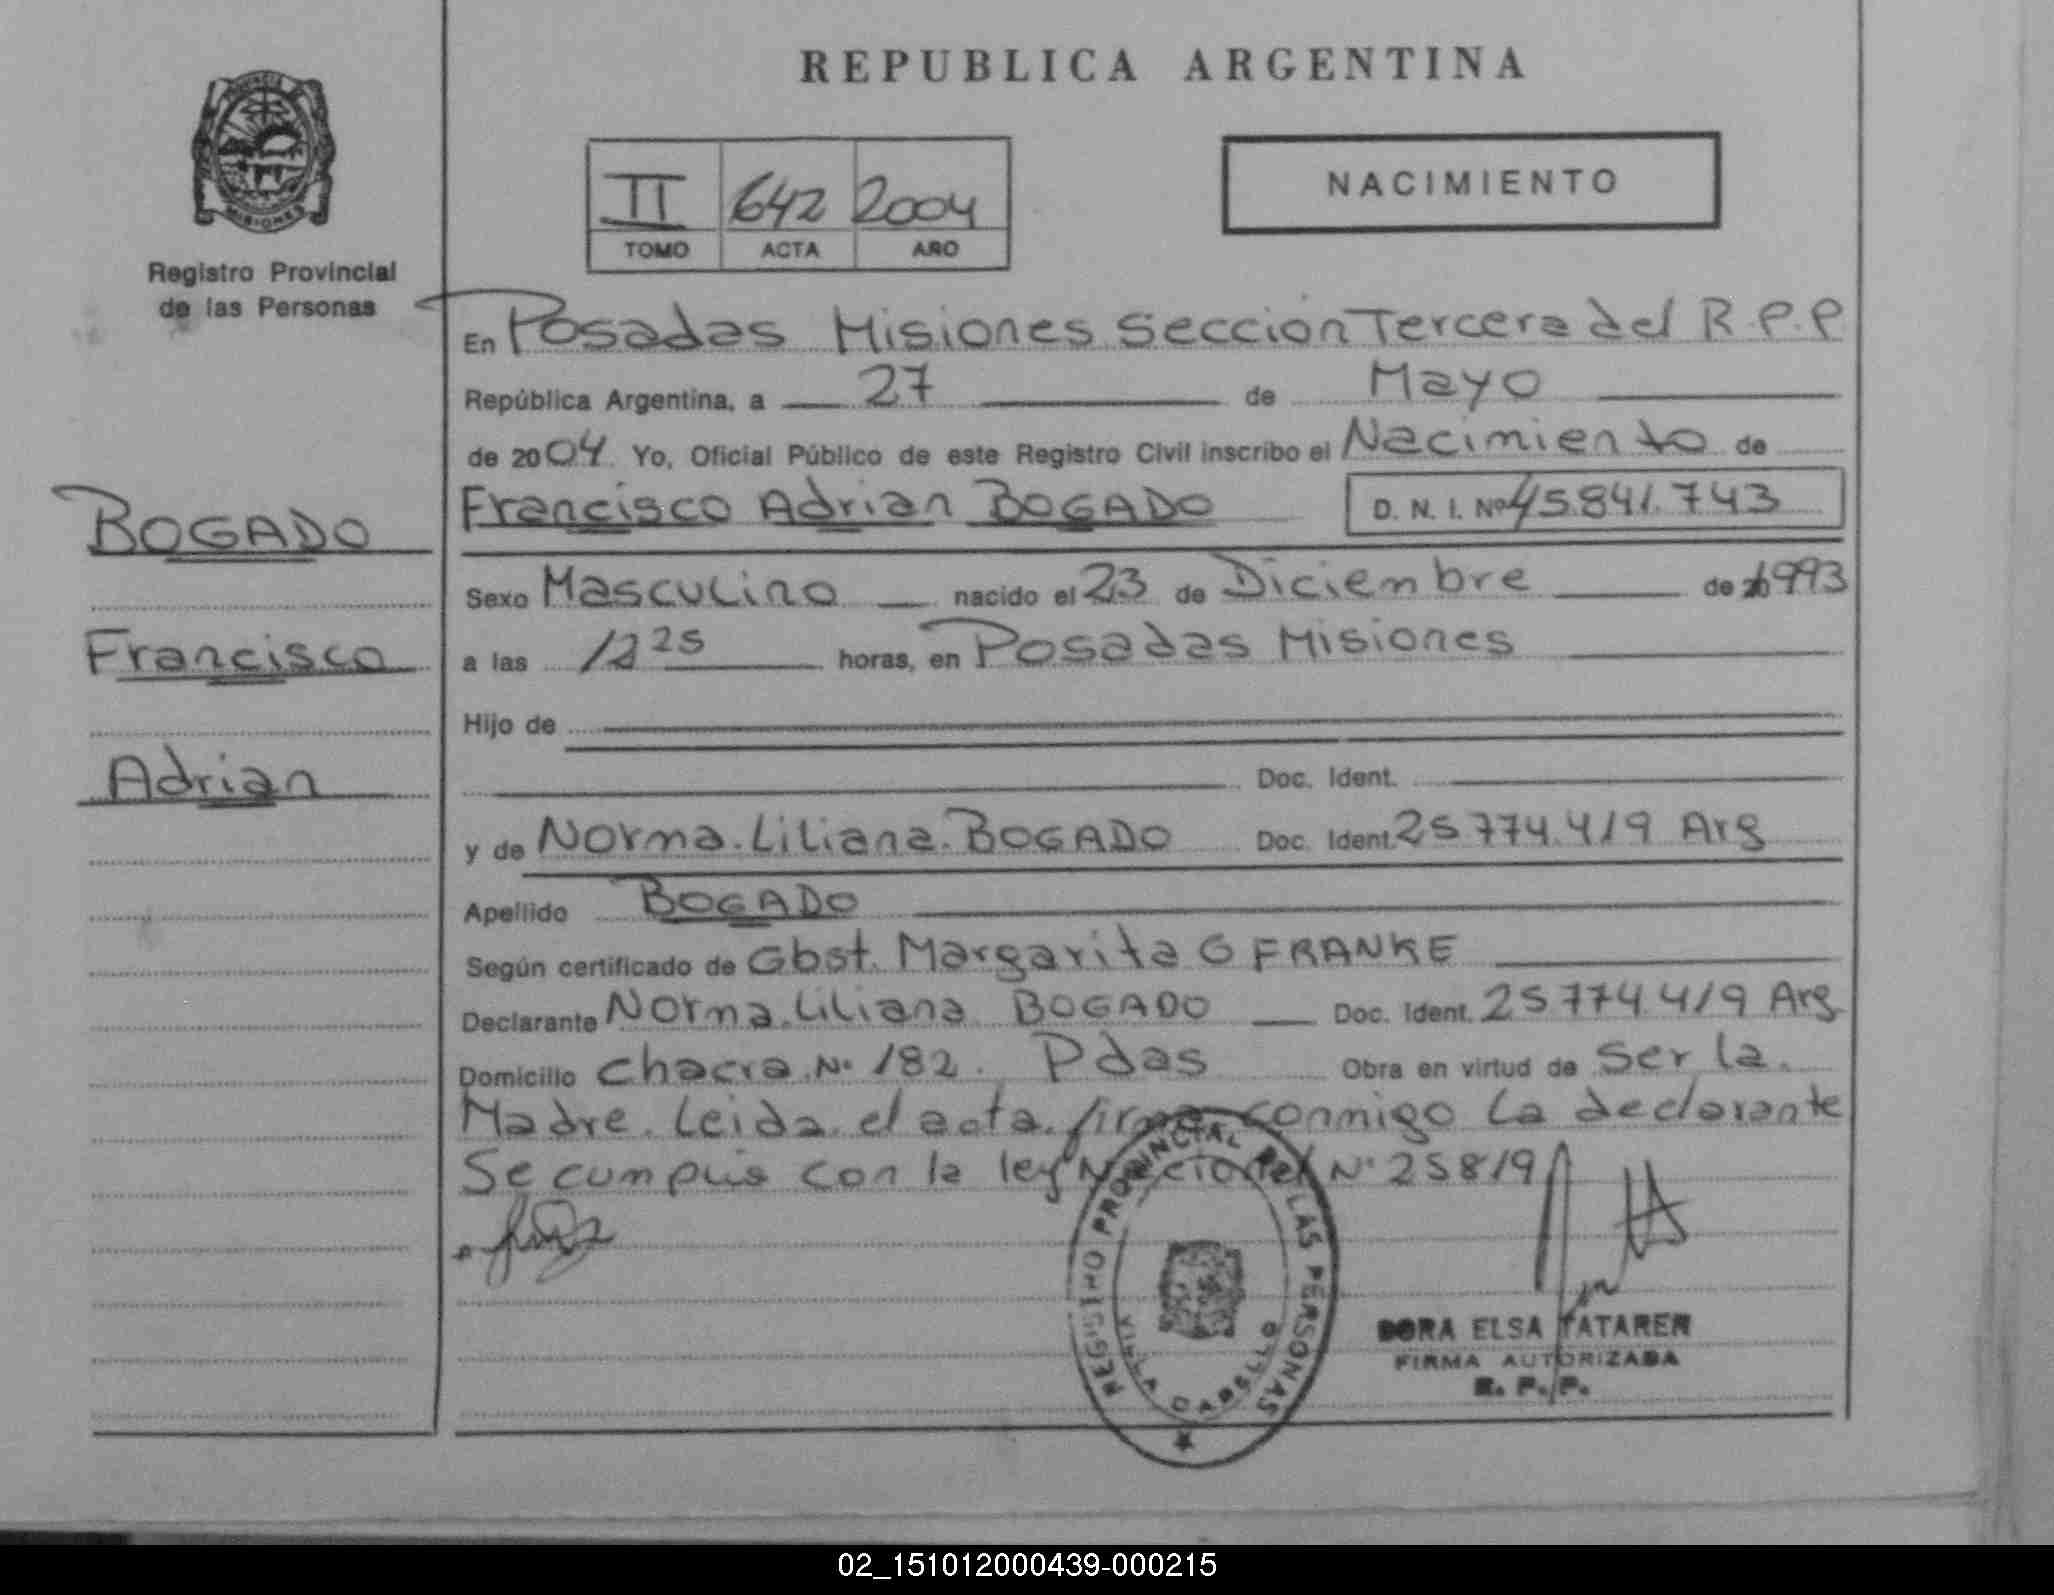 REPUBLICA ARGENTINA
PROVINCIA
MISIONES
Registro Provincial
de las Personas
II 642 2004
TOMO ACTA AÑO
NACIMIENTO
En Posadas Misiones Sección Tercera del R.P.P
República Argentina, a 27 de Mayo
de 2004 Yo, Oficial Público de este Registro Civil inscribo el Nacimiento de
Francisco Adrian BOGADO D. N. I. Nº 45.841.743
BOGADO
Francisco
Adrian
Sexo Masculino nacido el 23 de Diciembre de 1993
a las 12 25 horas, en Posadas Misiones
Hijo de
Doc. Ident.
y de Norma Liliana BOGADO Doc. Ident. 25774.419 Arg
Apellido BOGADO
Según certificado de Obst. Margarita G FRANKE
Declarante Norma Liliana BOGADO Doc. Ident. 25774419 Arg
Domicilio Chacra Nº 182. Pdas Obra en virtud de Ser la
Madre. Leida el acta firma conmigo La declarante
Se cumplio con la ley Nacional Nº 25819
REGISTRO PROVINCIAL DE LAS PERSONAS
VILLA CABELLO
DORA ELSA TATAREN
FIRMA AUTORIZADA
R. P. P.
02_151012000439-000215